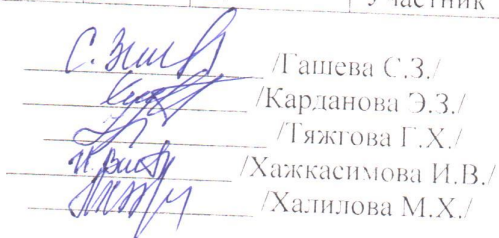 Участник
/Гашева С.З./
/Карданова Э.З./
/Тяжгова Г.Х./
/Хажкасимова И.В./
/Халилова М.Х./